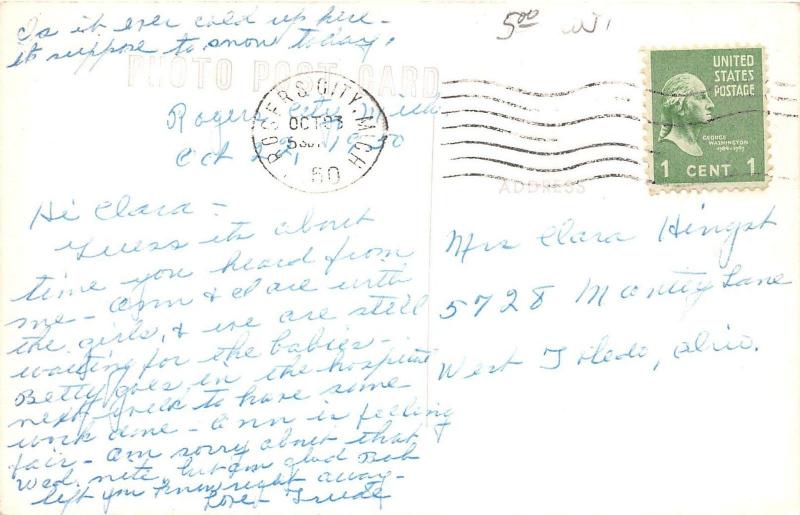 Is it ever cold up here -
it suppose to snow today.
5.00
PHOTO POST CARD
Rogers City, Mich
Oct 22, 1950
ROGERS CITY, MICH.
OCT 23
50
UNITED
STATES
POSTAGE
GEORGE
WASHINGTON
1789-1797
1 CENT 1
ADDRESS
Hi Clara -
Guess its about
time you heard from
me - Ann & I are with
the girls, & we are still
waiting for the babies -
Betty goes in the hospital
next week to have some
work done - Ann is feeling
fair - am sorry about that
Wed. nite, but am glad Bob
left you know right away -
Love - Trude
Mrs Clara Hingst
5728 Lane
West Toledo, Ohio.